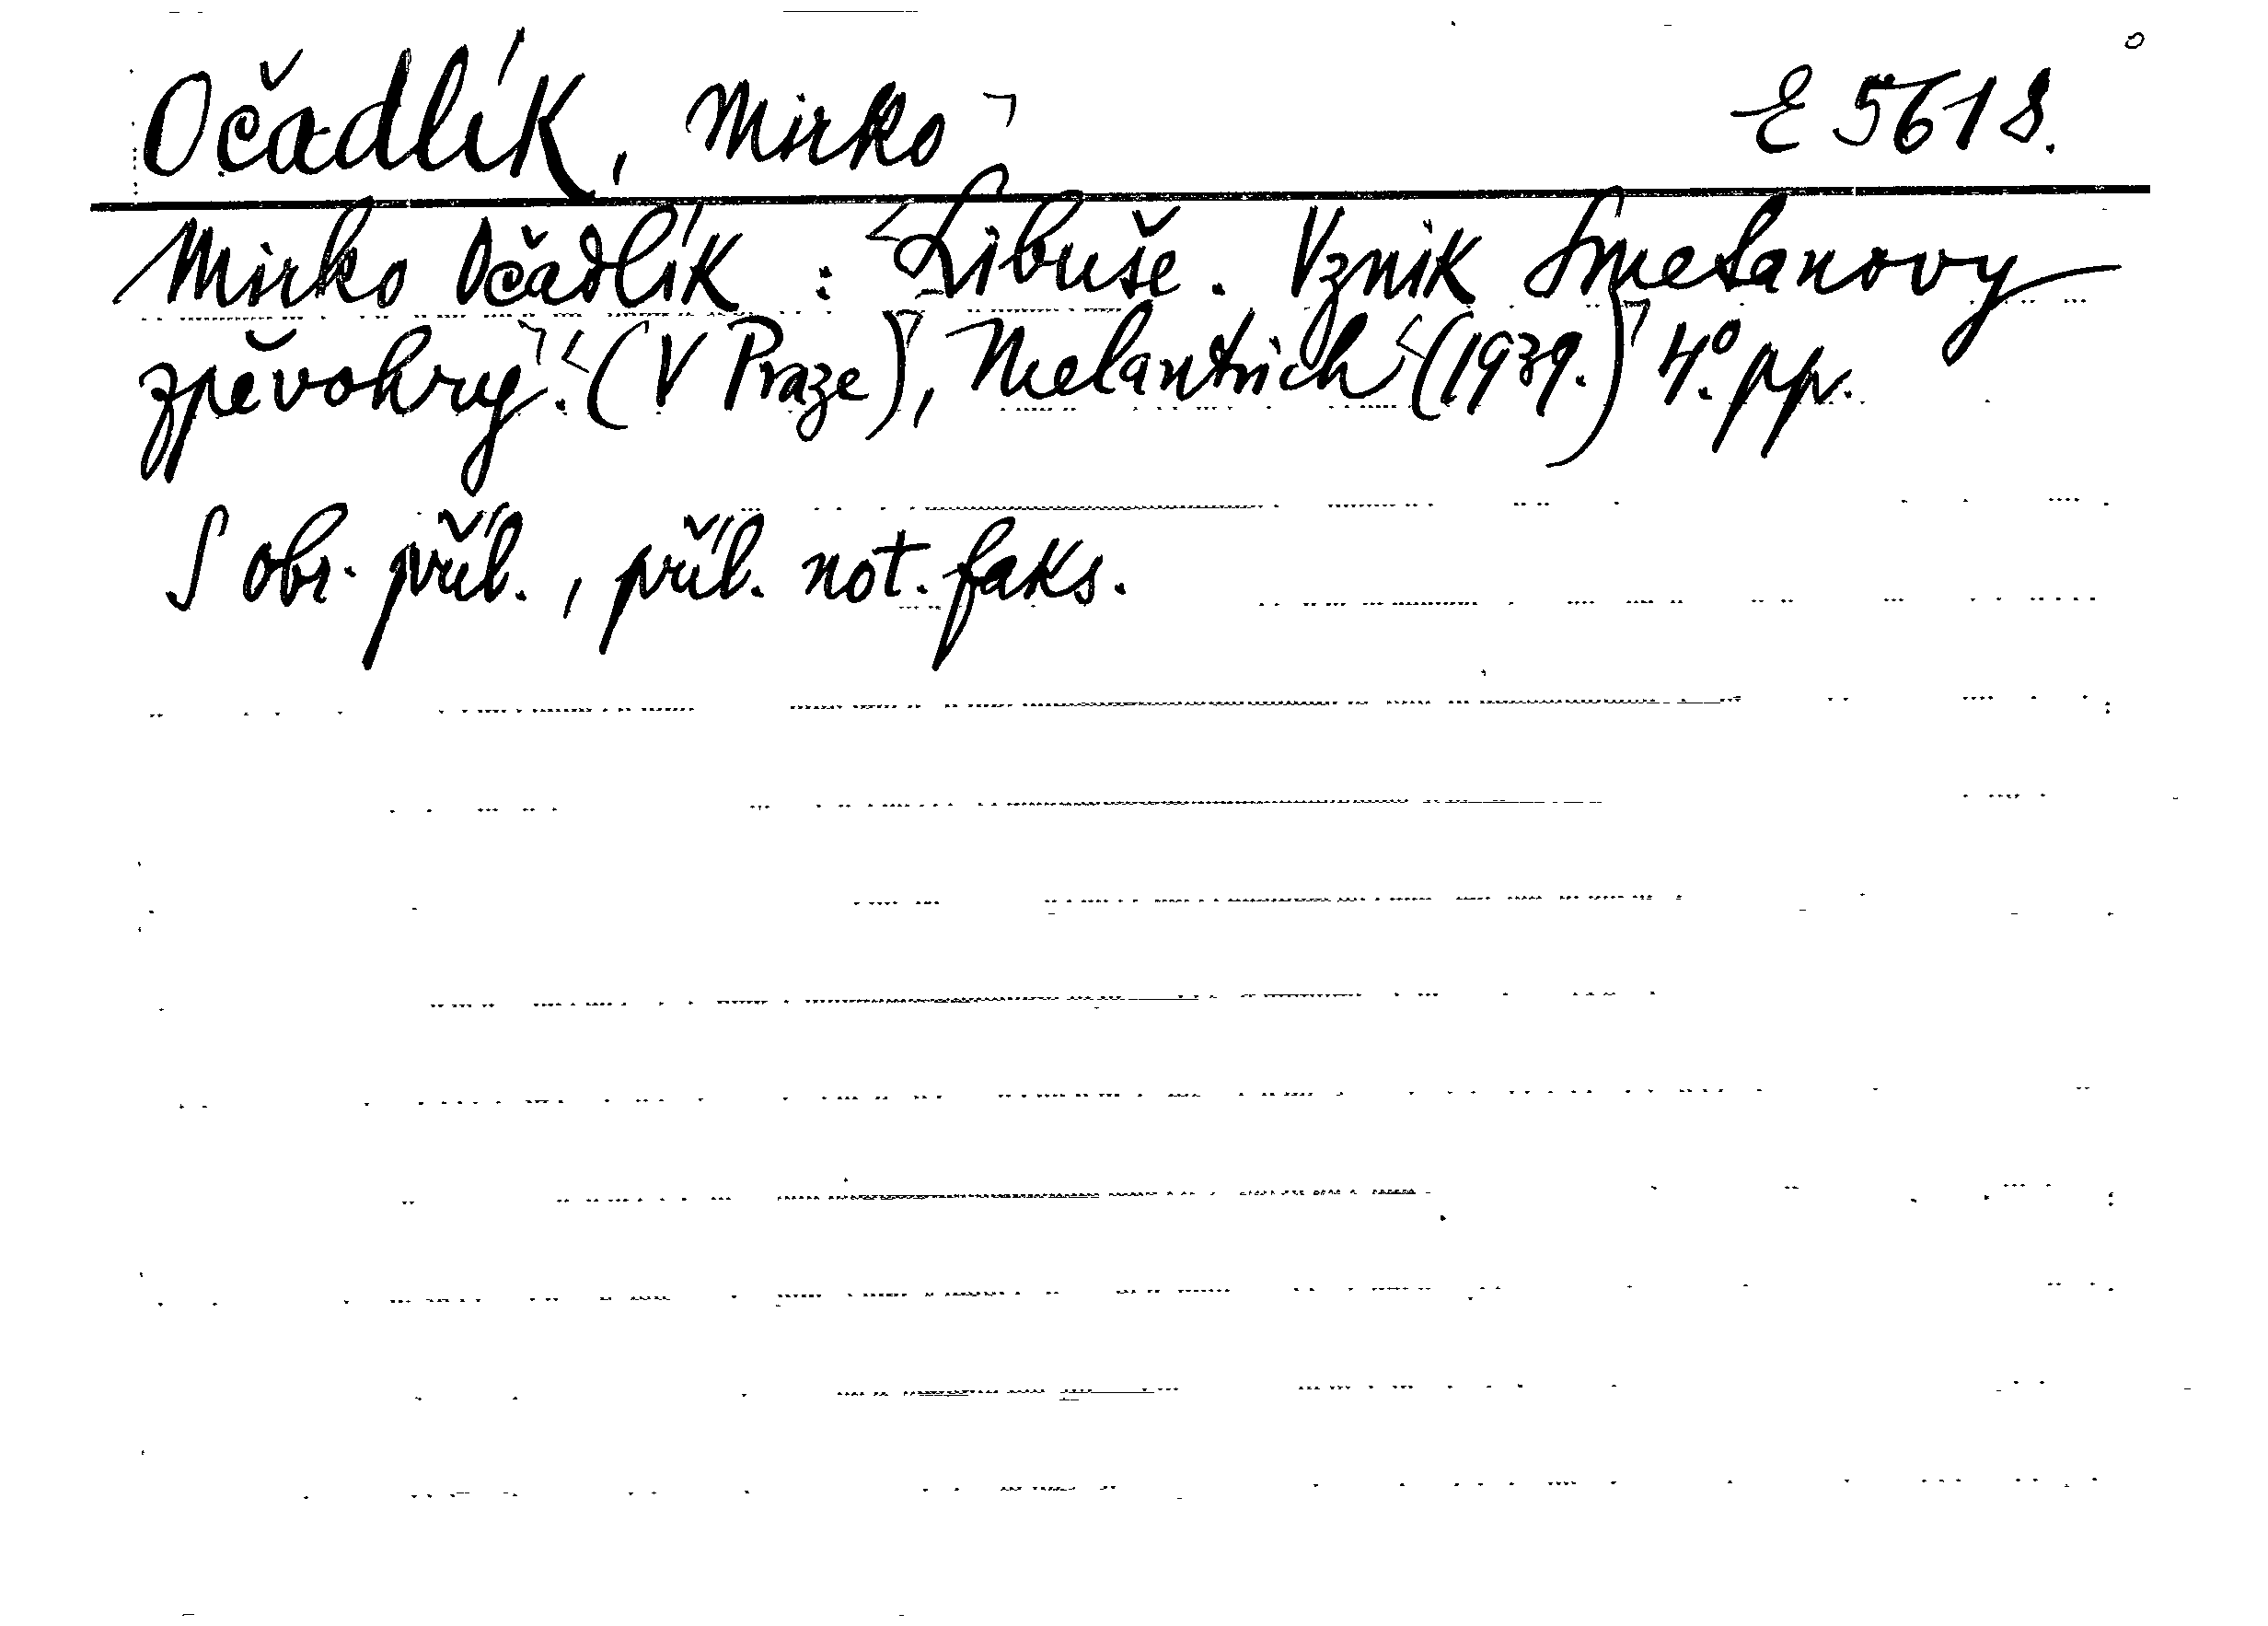 Očadlík, Mirko E 5618.
Mirko Očadlík : Libuše. Vznik Smetanovy
zpěvohry. (V Praze), Melantrich (1939.) 4°. pp.
S obr. příl., příl. not. faks.